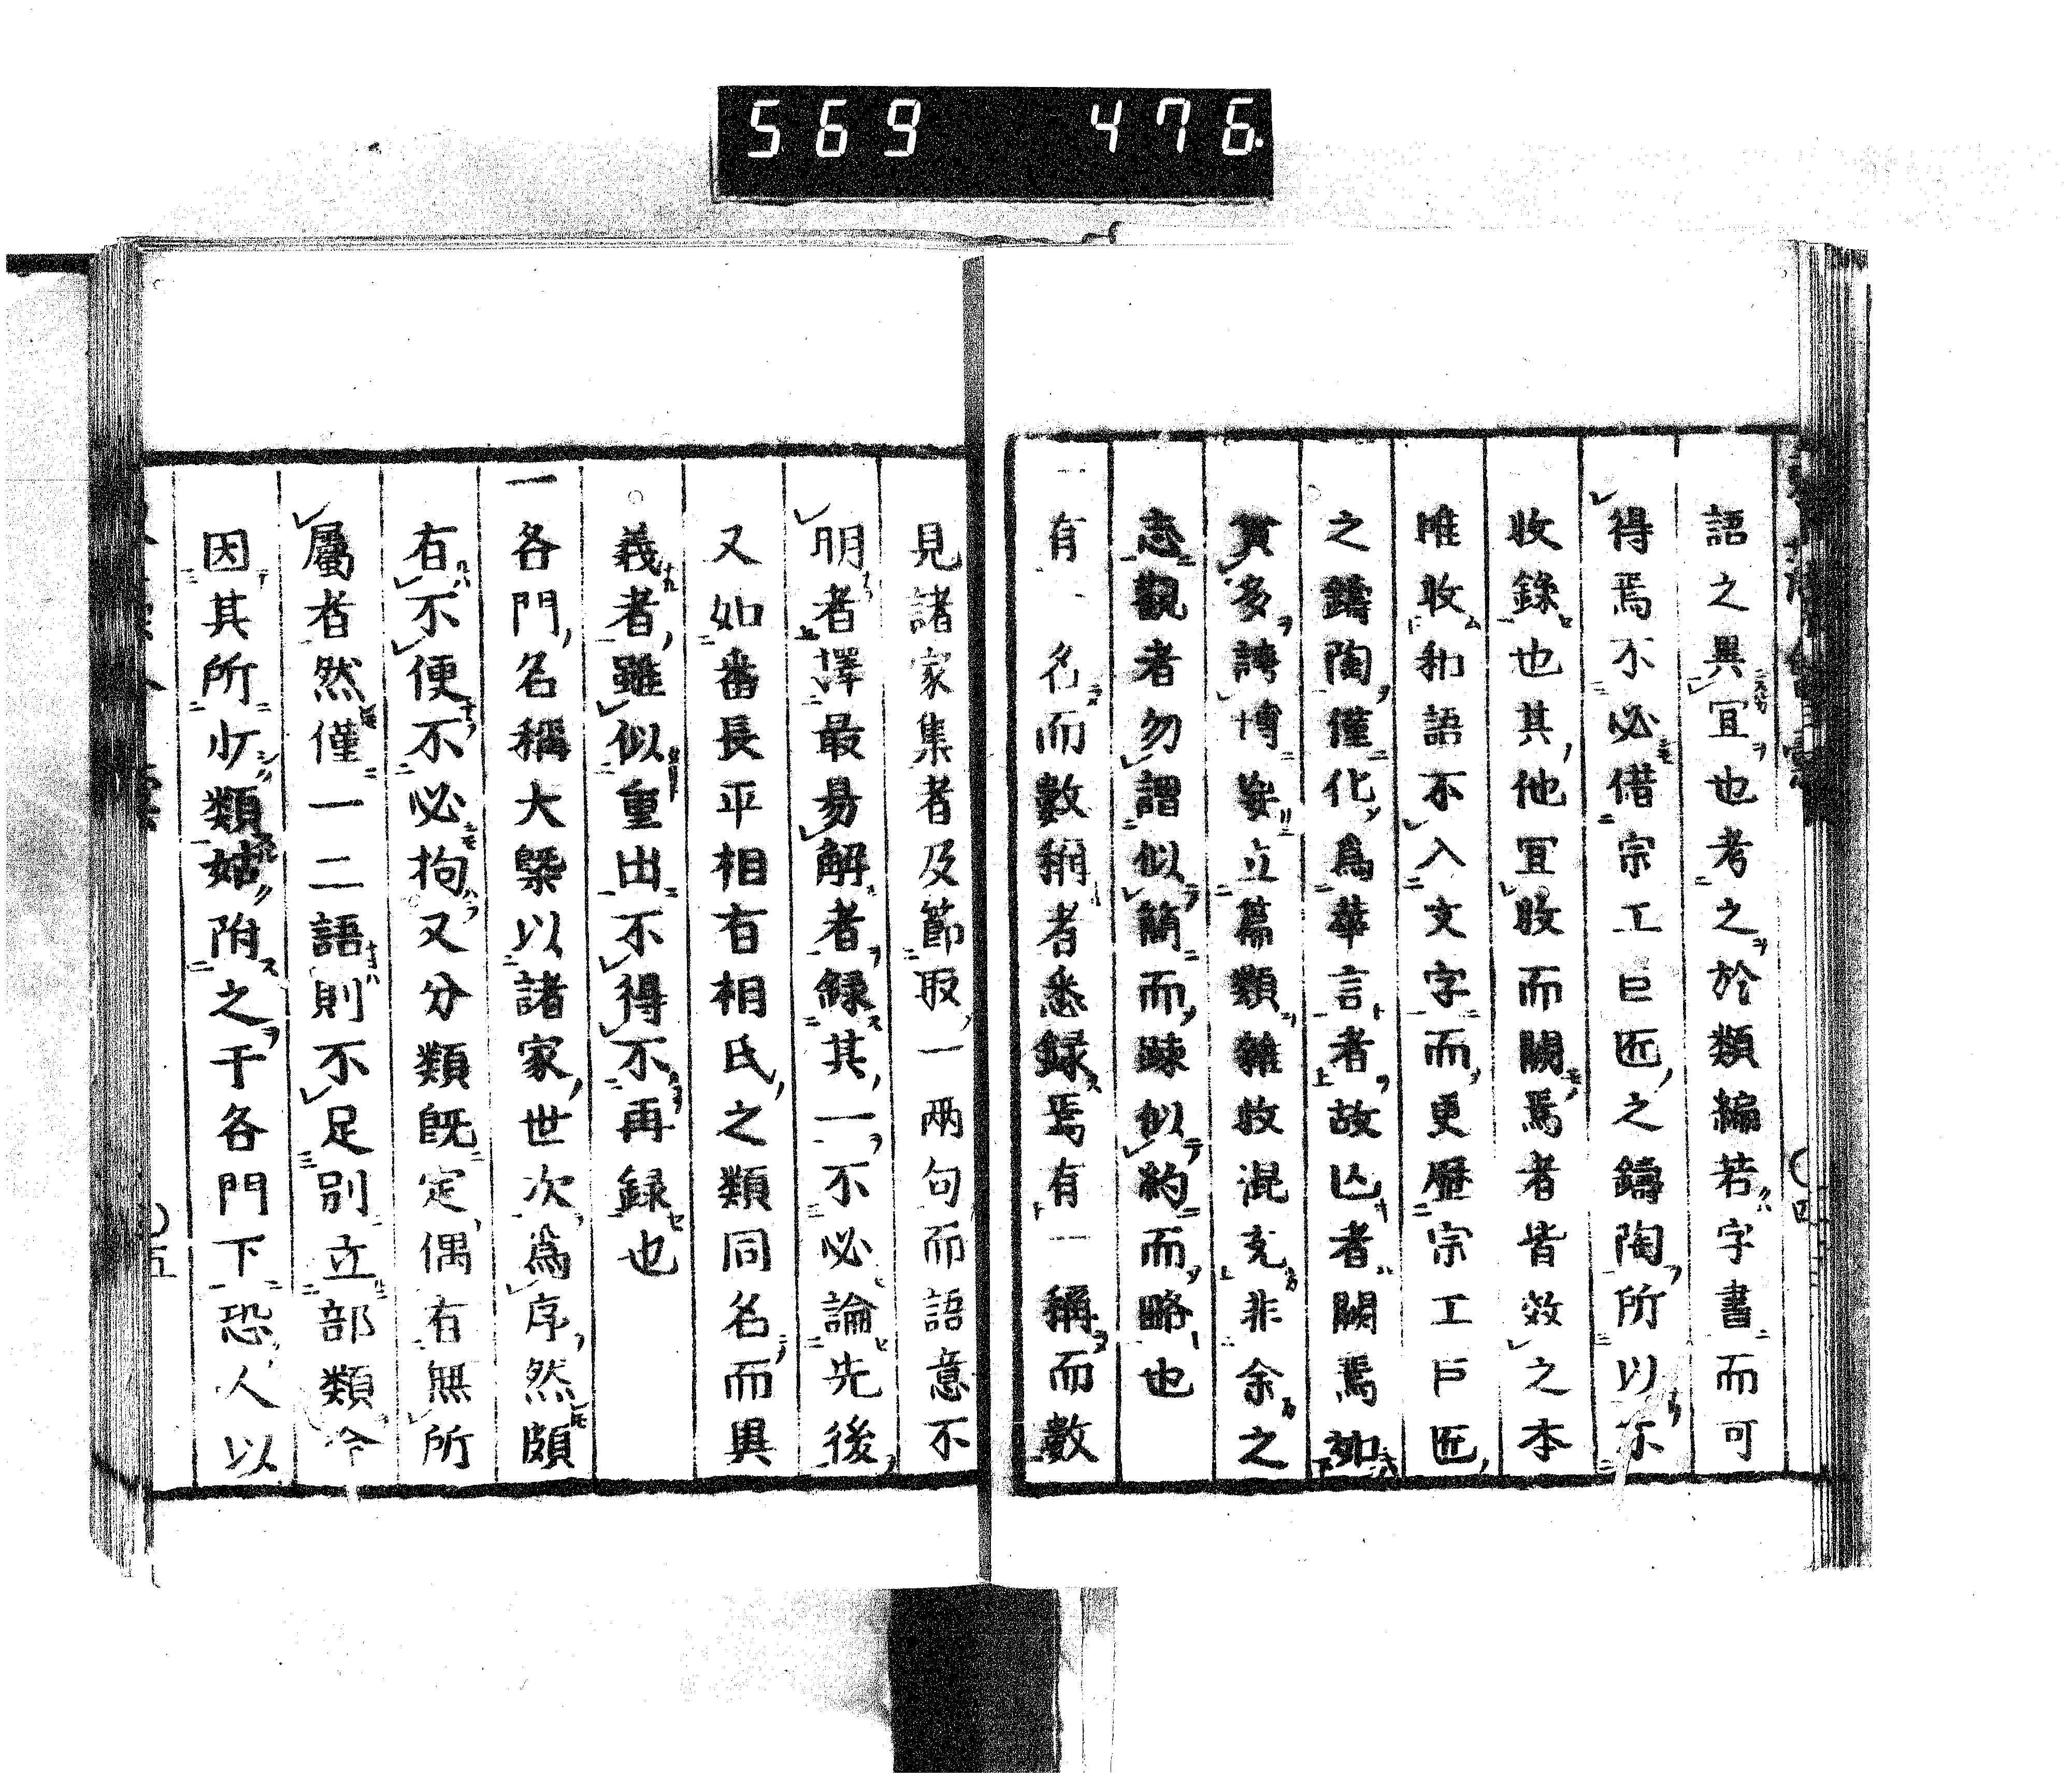 569 476.
語之異宜也考之於類編若字書而可
得焉不必借宗工巨匠之鑄陶所以不
收錄也其他冝收而闕焉者皆效之本
唯收和語不入文字而更歷宗工巨匠
之鑄陶僅化爲華言者故亾者闕焉如
貪多誇博妄立篇類雜收混充非余之
志觀者勿謂似簡而踈似約而略也
一有一名而數稱者悉録焉有一稱而數
見諸家集者及節取一兩句而語意不
明者擇最易解者録其一不必論先後
又如番長平相有相氏之類同名而異
義者雖似重出不得不再録也
一各門名稱大槩以諸家世次為序然頗
有不便不必拘又分類既定偶有無所
屬者然僅一二語則不足別立部類今
因其所少類姑附之于各門下恐人以
五